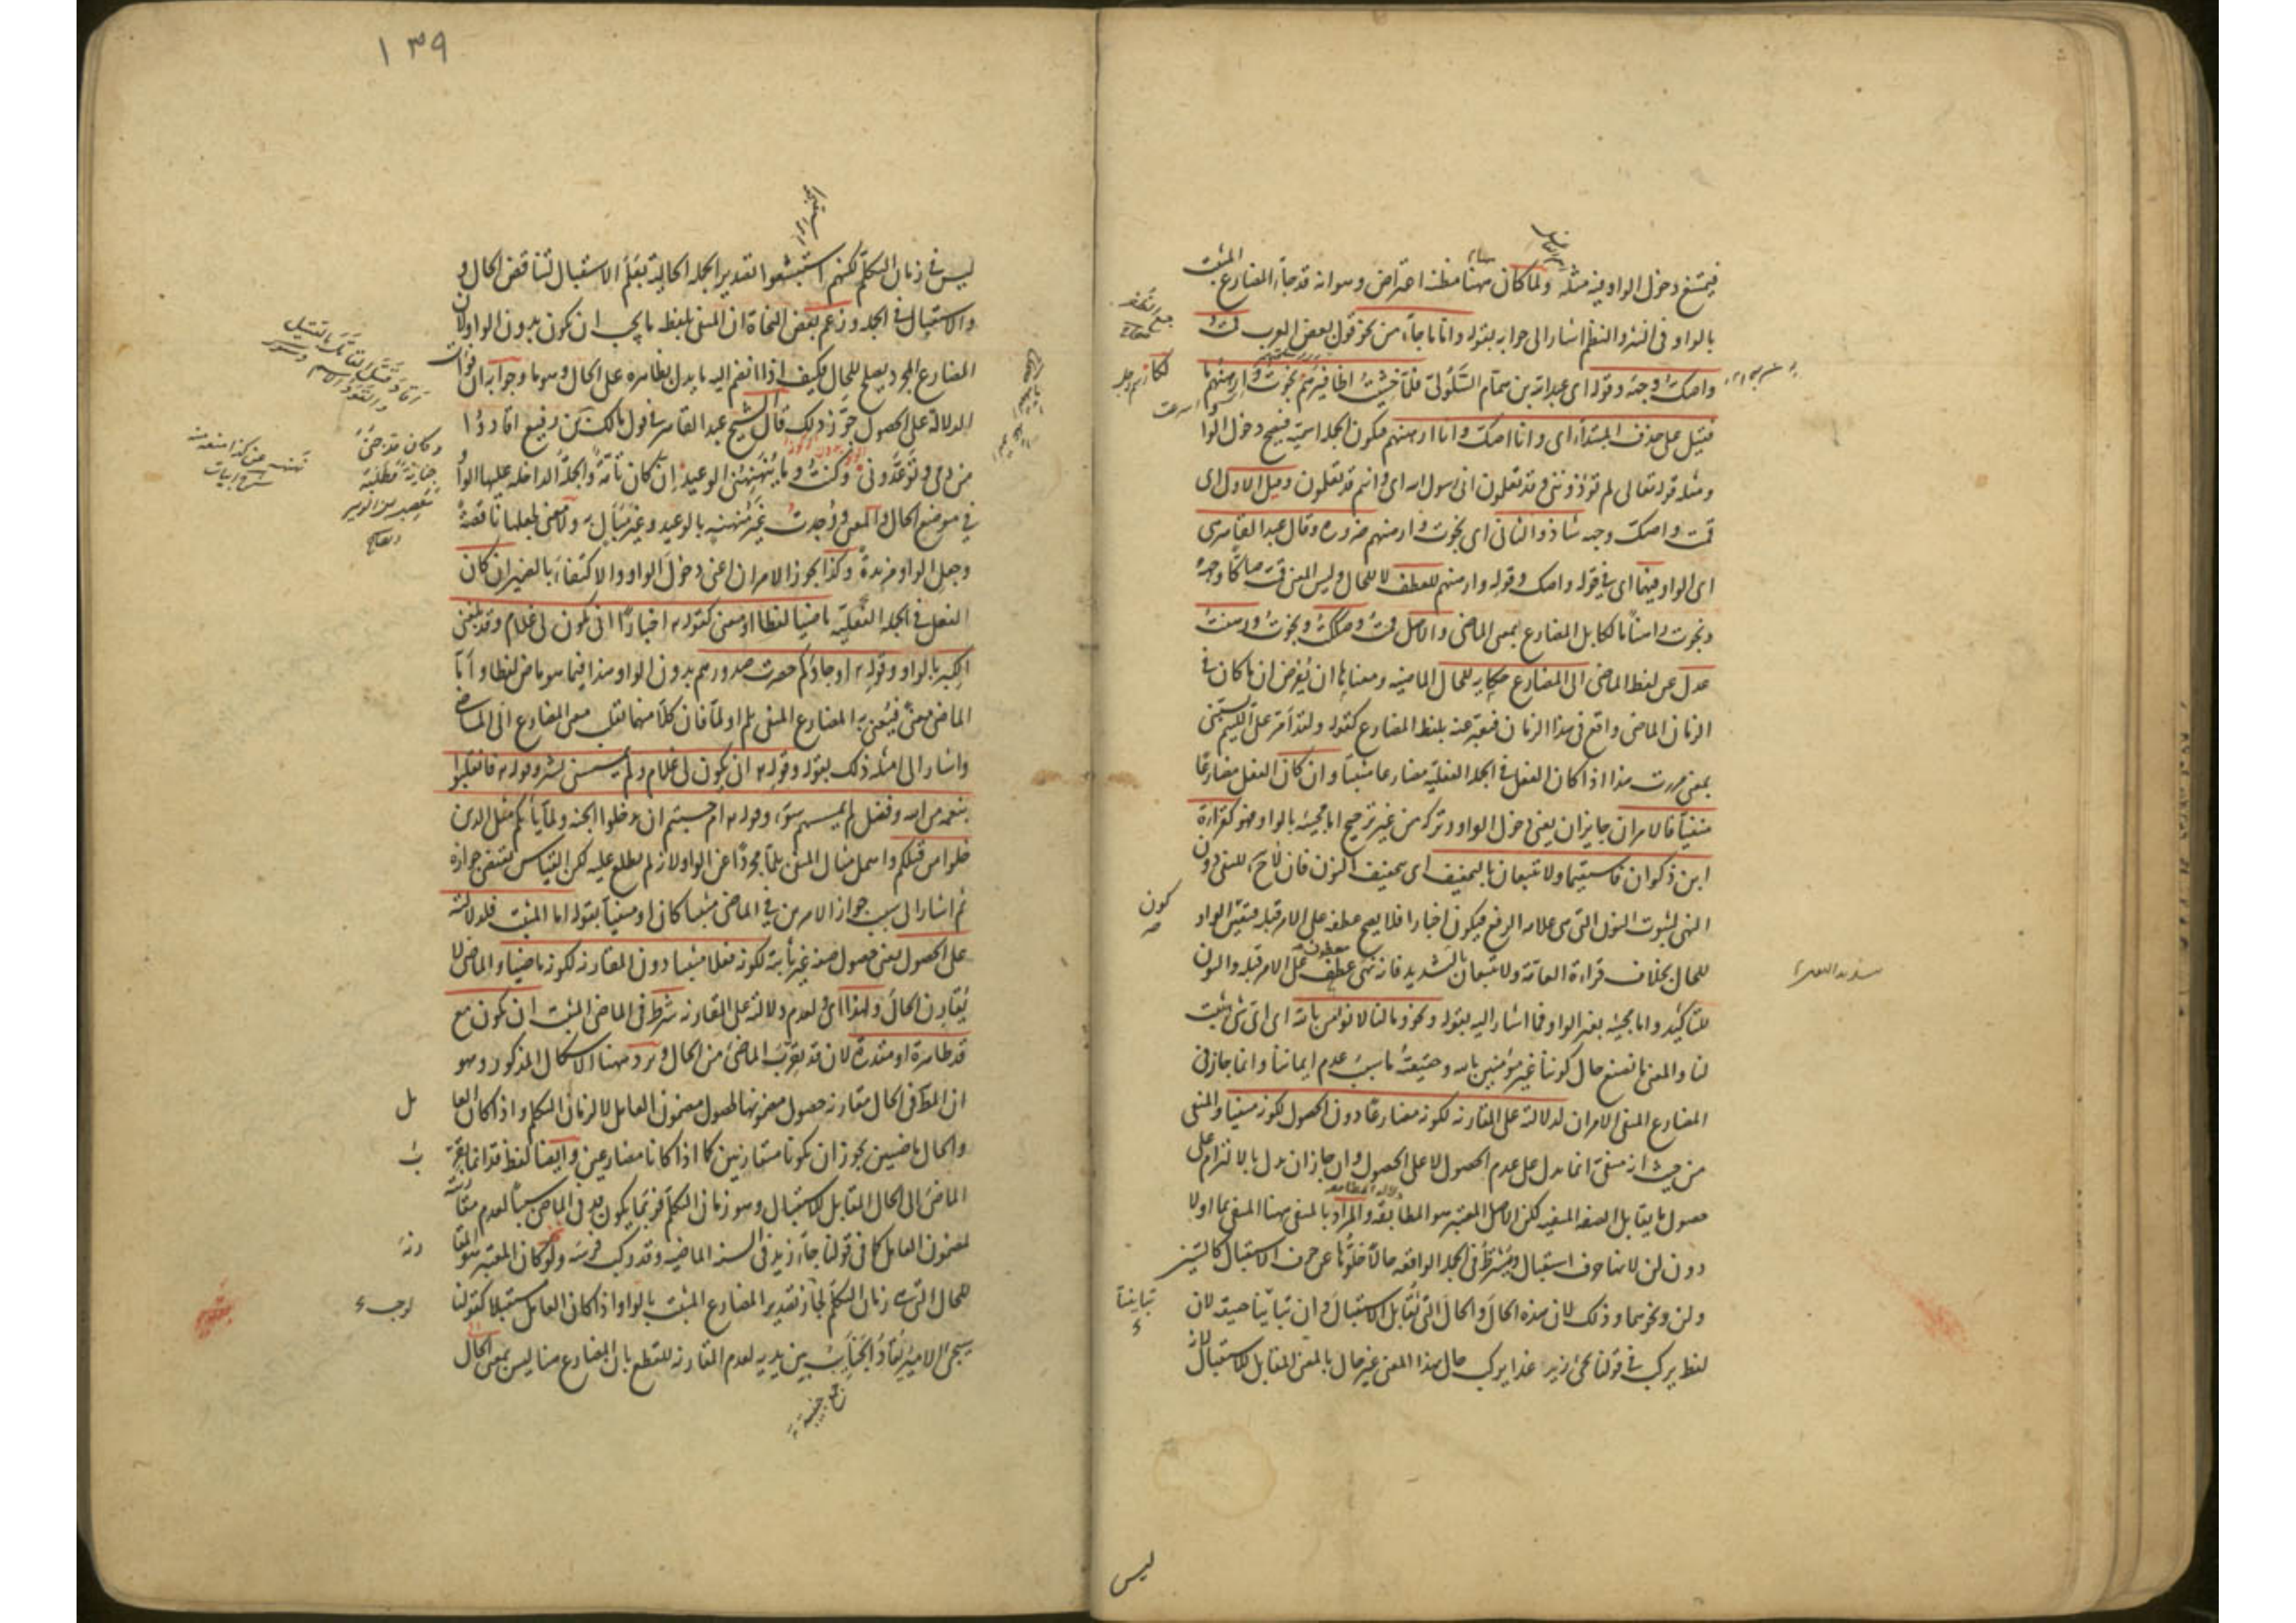 فيمتنع دخول الواو فيه مثله ولما كان ههنا مظنة اعتراض وهو انه قد جاء المضارع المثبت
بالواو فى النثر والنظم اشار الى جوابه بقوله واما ما جاء من نحو قول بعض العرب قمت
واصك وجهه وقوله اى عبد الله بن همام السلولى فلما خشيت اظافيرهم نجوت وارهنهم مالكا
فقيل على حذف المبتدأ اى وانا اصك وانا ارهنهم فيكون الجملة اسمية فيصح دخول الواو
ومثله قوله تعالى لم تؤذوننى وقد تعلمون انى رسول الله اى وانتم قد تعلمون وقيل الاول اى
قمت واصك وجهه شاذ والثانى اى نجوت وارهنهم ضرورة وقال عبد القاهر هى
اى الواو فيهما اى فى قوله واصك وقوله وارهنهم للعطف لا للحال وليس المعنى قمت صاكا وجهه
ونجوت راهنا مالكا بل المضارع بمعنى الماضى والاصل قمت وصككت ونجوت ورهنت
عدل عن لفظ الماضى الى المضارع حكاية للحال الماضية ومعناها ان يفرض ان ما كان فى
الزمان الماضى واقع فى هذا الزمان فيعبر عنه بلفظ المضارع كقوله ولقد أمر على اللئيم يسبنى
بمعنى مررت هذا اذا كان الفعل فى الجملة الفعلية مضارعا مثبتا وان كان الفعل مضارعا
منفيا فالامران جايزان يعنى دخول الواو وتركه من غير ترجيح اما مجيئه بالواو فهو كقراءة
ابن ذكوان فاستقيما ولا تتبعان بالتخفيف اى بتخفيف النون فان لا ح للنفى دون
النهى لثبوت النون التى هى علامة الرفع فيكون اخبارا فلا يصح عطفه على الامر قبله فيتعين الواو
للحال بخلاف قراءة العامة ولا تتبعان بالتشديد فانه نهى عطف على الامر قبله والنون
للتأكيد واما مجيئه بغير الواو فما اشار اليه بقوله ونحو وما لنا لا نؤمن بالله اى اى شئ ثبت
لنا والمعنى ما نصنع حال كوننا غير مؤمنين بالله وحقيقته ما سبب عدم ايماننا وانما جاز فى
المضارع المنفى الامران لدلالته على المقارنة لكونه مضارعا دون الحصول لكونه منفيا والمنفى
من حيث انه منفى انما يدل على عدم الحصول لا على الحصول وان جاز ان يدل بالالتزام على
حصول ما يقابل الصفة المنفية لكن الاصل المعتبر هو المطابقة والمراد بالمنفى ههنا المنفى بما او لا
دون لن لانها حرف استقبال ويشترط فى الجملة الواقعة حالا خلوها عن حرف الاستقبال كالسين
ولن ونحوهما وذلك لان هذه الحال والحال التى تقابل الاستقبال وان تباينا حقيقة لان
لفظ يركب فى قولنا يجئ زيد غدا يركب حال بهذا المعنى غير حال بالمعنى المقابل للاستقبال لانه
كون
تباينتا
ليس
١٣٩
ليس فى زمان التكلم لكنهم استبشعوا تصدير الجملة الحالية بعلم الاستقبال لتناقض الحال و
والاستقبال فى الجملة وزعم بعض النحاة ان المنفى بلفظ ما يجب ان يكون بدون الواو لان
المضارع المجرد يصلح للحال فكيف اذا انضم اليه ما يدل بظاهره على الحال وهو ما وجوابه ان فوات
الدلالة على الحصول جوز ذلك قال الشيخ عبد القاهر فى قول مالك بن رفيع اقادوا
من دمى وتوعدونى وكنت وما ينهنهنى الوعيد ان كان تامة والجملة الداخلة عليها الواو
فى موضع الحال والمعنى وجدت غير منهنه بالوعيد وغير مبال به ولا معنى لجعلها ناقصة
وجعل الواو مزيدة وكذا يجوز الامران اعنى دخول الواو والاكتفاء بالضمير ان كان
الفعل فى الجملة الفعلية ماضيا لفظا او معنى كقوله اخبارا انى يكون لى غلام وقد بلغنى
الكبر بالواو وقوله او جاؤكم حصرت صدورهم بدون الواو وهذا فيما هو ماض لفظا واما
الماضى معنى فيعنى به المضارع المنفى بلم او لما فان كلا منهما يقلب معنى المضارع الى الماضى
واشار الى امثلة ذلك بقوله وقوله انى يكون لى غلام ولم يمسسنى بشر وقوله فانقلبوا
بنعمة من الله وفضل لم يمسسهم سوء وقوله ام حسبتم ان تدخلوا الجنة ولما يأتكم مثل الذين
خلوا من قبلكم واهمل مثال المنفى بلما مجردا عن الواو لانه لم يطلع عليه لكن القياس يقتضى جوازه
ثم اشار الى سبب جواز الامرين فى الماضى مثبتا كان او منفيا بقوله اما المثبت فلدلالته
على الحصول يعنى حصول صفة غير ثابتة لكونه فعلا مثبتا دون المقارنة لكونه ماضيا والماضى لا
يقارن الحال ولهذا اى ولعدم دلالته على المقارنة شرط فى الماضى المثبت ان يكون مع
قد ظاهرة او مقدرة لان قد يقرب الماضى من الحال ويرد ههنا الاشكال المذكور وهو
ان المط فى الحال مقارنة حصول مضمونها لحصول مضمون العامل لا لزمان التكلم واذا كان العا
مل
والحال ماضيين يجوز ان يكونا متقارنين كما اذا كانا مضارعين وايضا لفظ قد انما يقر
ب
الماضى الى الحال المقابل للاستقبال وهو زمان التكلم فربما يكون قد فى الماضى سببا لعدم مقارنته
لمضمون العامل كما فى قولنا جاء زيد فى السنة الماضية وقد ركب فرسه ولو كان المعتبر هو المقا
رنة
للحال التى هى زمان التكلم لجاز تصدير المضارع المثبت بالواو اذا كان العامل مستقبلا كقولنا
يجئ الامير تقاد الجنائب بين يديه لعدم المقارنة للقطع بان المضارع هنا ليس بمعنى الحال